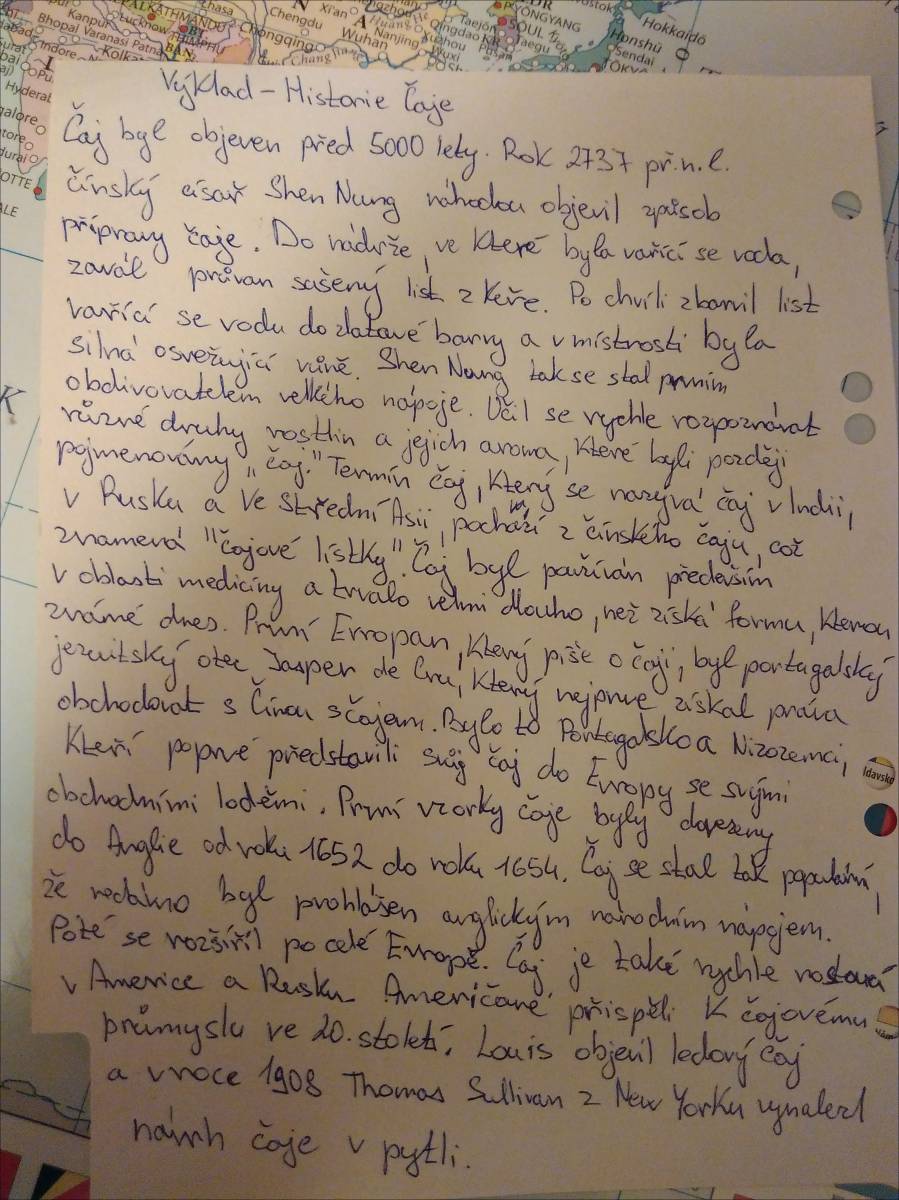 Lucknow
KATHMANDU
THIMPHU
Lhasa
Chengdu
Chongqing
Xi'an
Wuhan
Huang He
Nanjing
Chang Jiang
Qingdao
Taejŏn
SOUL
Taegu
PYONGYANG
Hokkaidō
Honshū
Sendai
Kanpur
Bhopal Varanasi Patna
Indore
Kolkata
BAN
Výklad – Historie Čaje
Čaj byl objeven před 5000 lety. Rok 2737 př.n.l.
čínský císař Shen Nung náhodou objevil způsob
přípravy čaje. Do nádrže, ve které byla vařící se voda,
zavál průvan sušený list z keře. Po chvíli zbarvil list
vařící se vodu do zlatavé barvy a v místnosti byla
silná osvežující vůně. Shen Nung tak se stal prvním
obdivovatelem velkého nápoje. Učil se rychle rozpoznávat
různé druhy rostlin a jejich aroma, které byli později
pojmenovány "čaj." Termín čaj, který se nazývá čaj v Indii,
v Rusku a ve střední Asii, pochází z čínského čaju, což
znamená "čajové lístky". Čaj byl používán především
v oblasti medicíny a trvalo velmi dlouho, než získá formu, kterou
známé dnes. První Evropan, který píše o čaji, byl portugalský
jezuitský otec Jasper de Cru, který nejprve získal práva
obchodovat s Čínou s čajem. Bylo to Portugalsko a Nizozemci,
kteří poprvé představili svůj čaj do Evropy se svými
obchodními loděmi. První vzorky čaje byly dovezeny
do Anglie od roku 1652 do roku 1654. Čaj se stal tak populární,
že nedávno byl prohlášen anglickým národním nápojem.
Poté se rozšířil po celé Evropě. Čaj je také rychle
v Americe a Rusku. Američané přispěli k čajovému
průmyslu ve 20. století. Louis objevil ledový čaj
a v roce 1908 Thomas Sullivan z New Yorku vynalezl
návrh čaje v pytli.